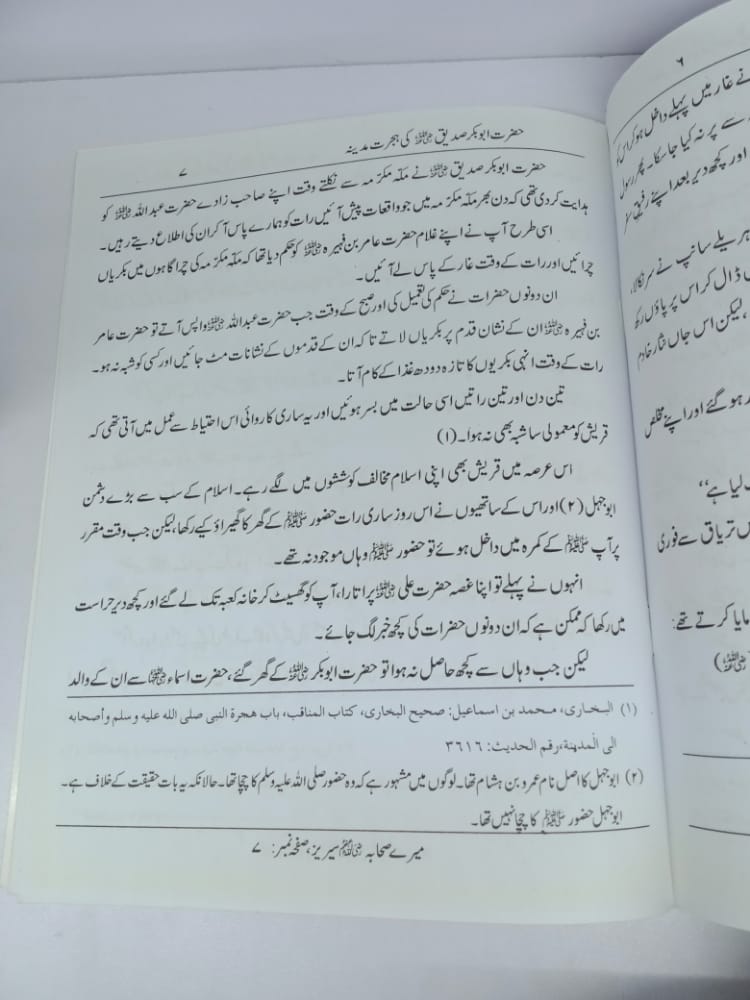 حضرت ابوبکر صدیق رضی اللہ عنہ کی ہجرت مدینہ
۷
حضرت ابوبکر صدیق رضی اللہ عنہ نے مکہ مکرمہ سے نکلتے وقت اپنے صاحب زادے حضرت عبداللہ رضی اللہ عنہ کو
ہدایت کردی تھی کہ دن بھر مکہ مکرمہ میں جو واقعات پیش آئیں رات کو ہمارے پاس آکر ان کی اطلاع دیتے رہیں۔
اسی طرح آپ نے اپنے غلام حضرت عامر بن فہیرہ رضی اللہ عنہ کو حکم دیا تھا کہ مکہ مکرمہ کی چراگاہوں میں بکریاں
چرائیں اور رات کے وقت غار کے پاس لے آئیں۔
ان دونوں حضرات نے حکم کی تعمیل کی اور صبح کے وقت جب حضرت عبداللہ رضی اللہ عنہ واپس آتے تو حضرت عامر
بن فہیرہ رضی اللہ عنہ ان کے نشان قدم پر بکریاں لاتے تاکہ ان کے قدموں کے نشانات مٹ جائیں اور کسی کو شبہ نہ ہو۔
رات کے وقت انہی بکریوں کا تازہ دودھ غذا کے کام آتا۔
تین دن اور تین راتیں اسی حالت میں بسر ہوئیں اور یہ ساری کاروائی اس احتیاط سے عمل میں آتی تھی کہ
قریش کو معمولی سا شبہ بھی نہ ہوا۔ (۱)
اس عرصہ میں قریش بھی اپنی اسلام مخالف کوششوں میں لگے رہے۔ اسلام کے سب سے بڑے دشمن
ابوجہل (۲) اور اس کے ساتھیوں نے اس روز ساری رات حضور ﷺ کے گھر کا گھیراؤ کیے رکھا، لیکن جب وقت مقرر
پر آپ ﷺ کے کمرہ میں داخل ہوئے تو حضور ﷺ وہاں موجود نہ تھے۔
انہوں نے پہلے تو اپنا غصہ حضرت علی رضی اللہ عنہ پر اتارا، آپ کو گھسیٹ کر خانہ کعبہ تک لے گئے اور کچھ دیر حراست
میں رکھا کہ ممکن ہے کہ ان دونوں حضرات کی کچھ خبر لگ جائے۔
لیکن جب وہاں سے کچھ حاصل نہ ہوا تو حضرت ابوبکر رضی اللہ عنہ کے گھر گئے، حضرت اسماء رضی اللہ عنہا سے ان کے والد
(۱) البخاری، محمد بن اسماعیل: صحیح البخاری، کتاب المناقب، باب هجرة النبی صلی الله علیه وسلم وأصحابه
الی المدینة، رقم الحدیث: ۳۶۱۶
(۲) ابوجہل کا اصل نام عمرو بن ہشام تھا۔ لوگوں میں مشہور ہے کہ وہ حضور صلی اللہ علیہ وسلم کا چچا تھا۔ حالانکہ یہ بات حقیقت کے خلاف ہے۔
ابوجہل حضور ﷺ کا چچا نہیں تھا۔
میرے صحابہ رضی اللہ عنہم سیریز، صفحہ نمبر: ۷
۶
نے غار میں پہلے داخل ہو کر اس کو
سے پر نہ کیا جا سکا۔ پھر رسول
اور کچھ دیر بعد اپنے رفیق سفر
ہریلے سانپ نے سر نکالا،
ں ڈال کر اس پر پاؤں رکھ
، لیکن اس جاں نثار خادم
د ہو گئے اور اپنے مخلص
لیا ہے‘‘
ں تریاق سے فوری
مایا کرتے تھے:
رضی اللہ عنہ)